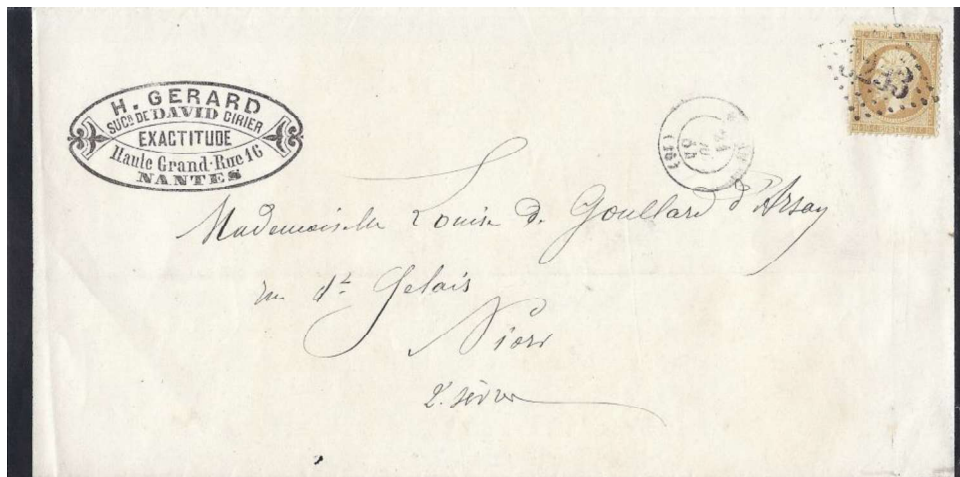 H. GERARD
SUCR DE DAVID CIRIER
EXACTITUDE
Haute Grand-Rue 16
NANTES
(42)
Mademoiselle Louise de Goullard d'Arsay
rue St Gelais
Niort
2. sèvres